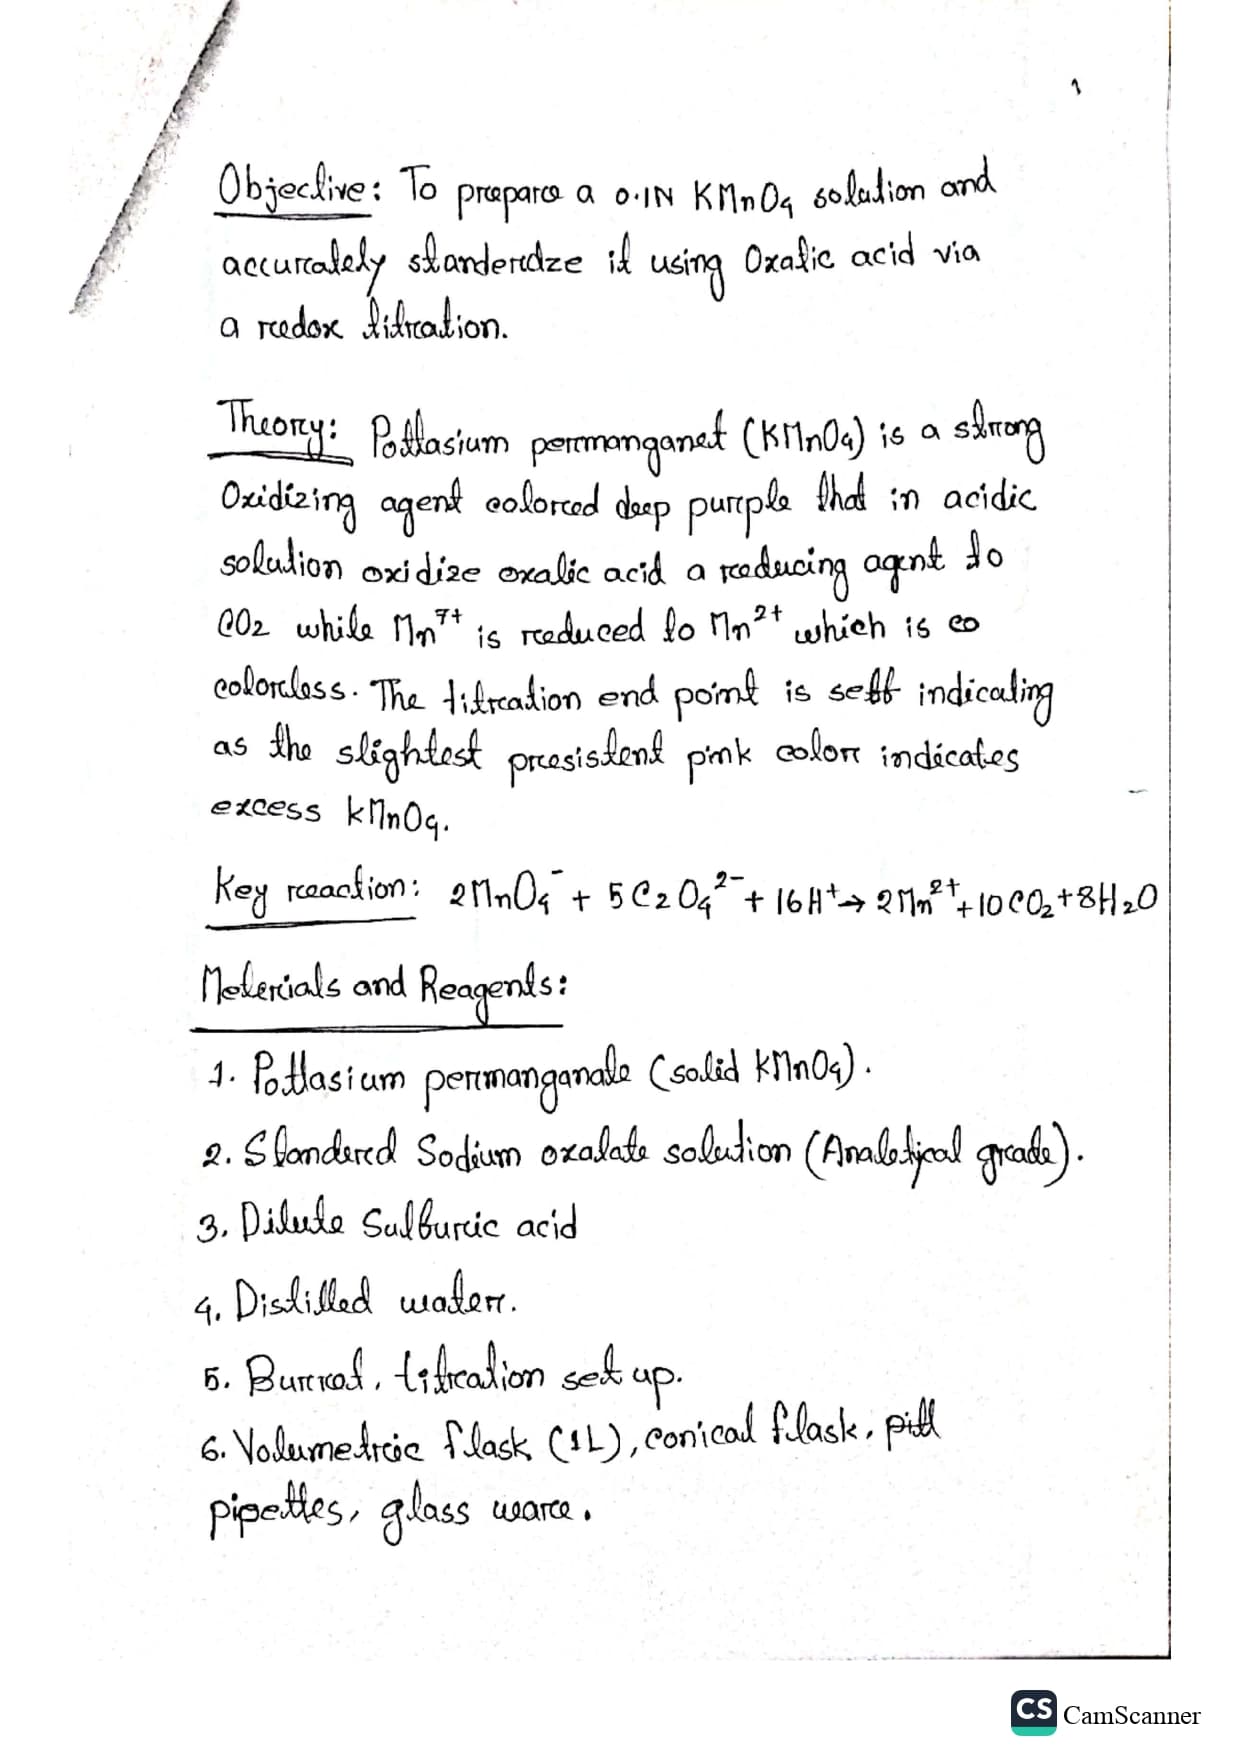 1
Objective: To prepare a 0.1N KMnO4 solution and
accurately standerdze it using Oxalic acid via
a redox titration.
Theory: Pottasium permanganet (KMnO4) is a strong
Oxidizing agent colored deep purple that in acidic
solution oxidize oxalic acid a reducing agent to
CO2 while Mn⁷⁺ is reduced to Mn²⁺ which is co
colorless. The titration end point is self indicating
as the slightest presistent pink color indicates
excess kMnO4.
Key reaction: 2MnO4⁻ + 5C2O4²⁻ + 16H⁺ → 2Mn²⁺ + 10CO2 + 8H2O
Meterials and Reagents:
1. Pottasium permanganate (solid kMnO4).
2. Standered Sodium oxalate solution (Analetical grade).
3. Dilute Sulfuric acid
4. Distilled water.
5. Burret, titration set up.
6. Volumetric flask (1L), conical flask, pitt
pipettes, glass ware.
CS CamScanner